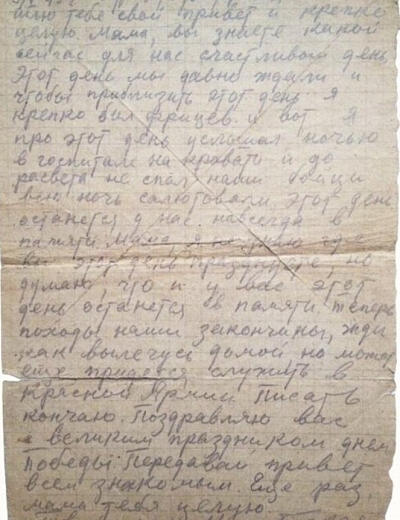 шлю тебе свой привет и крепко
целую. Мама, вы знаете какой
сейчас для нас счастливый день,
этот день мы давно ждали и
чтобы приблизить этот день я
крепко бил фрицев. и вот я
про этот день услышал ночью
в госпитали на кровати и до
расвета не спал, наши бойци
всю ночь салютовали. этот день
останется у нас навсегда в
памяти. Мама, я не знаю где
вы этот день празднуете, но
думаю, что и у вас этот
день останется в памяти. теперь
походы наши закончины, жди
как вылечусь домой, но может
еще придется служить в
Красной Армии. Писать
кончаю. Поздравляю вас
с великим праздником днем
Победы. Передавай привет
всем знакомым. Еще раз,
мама тебя целую.